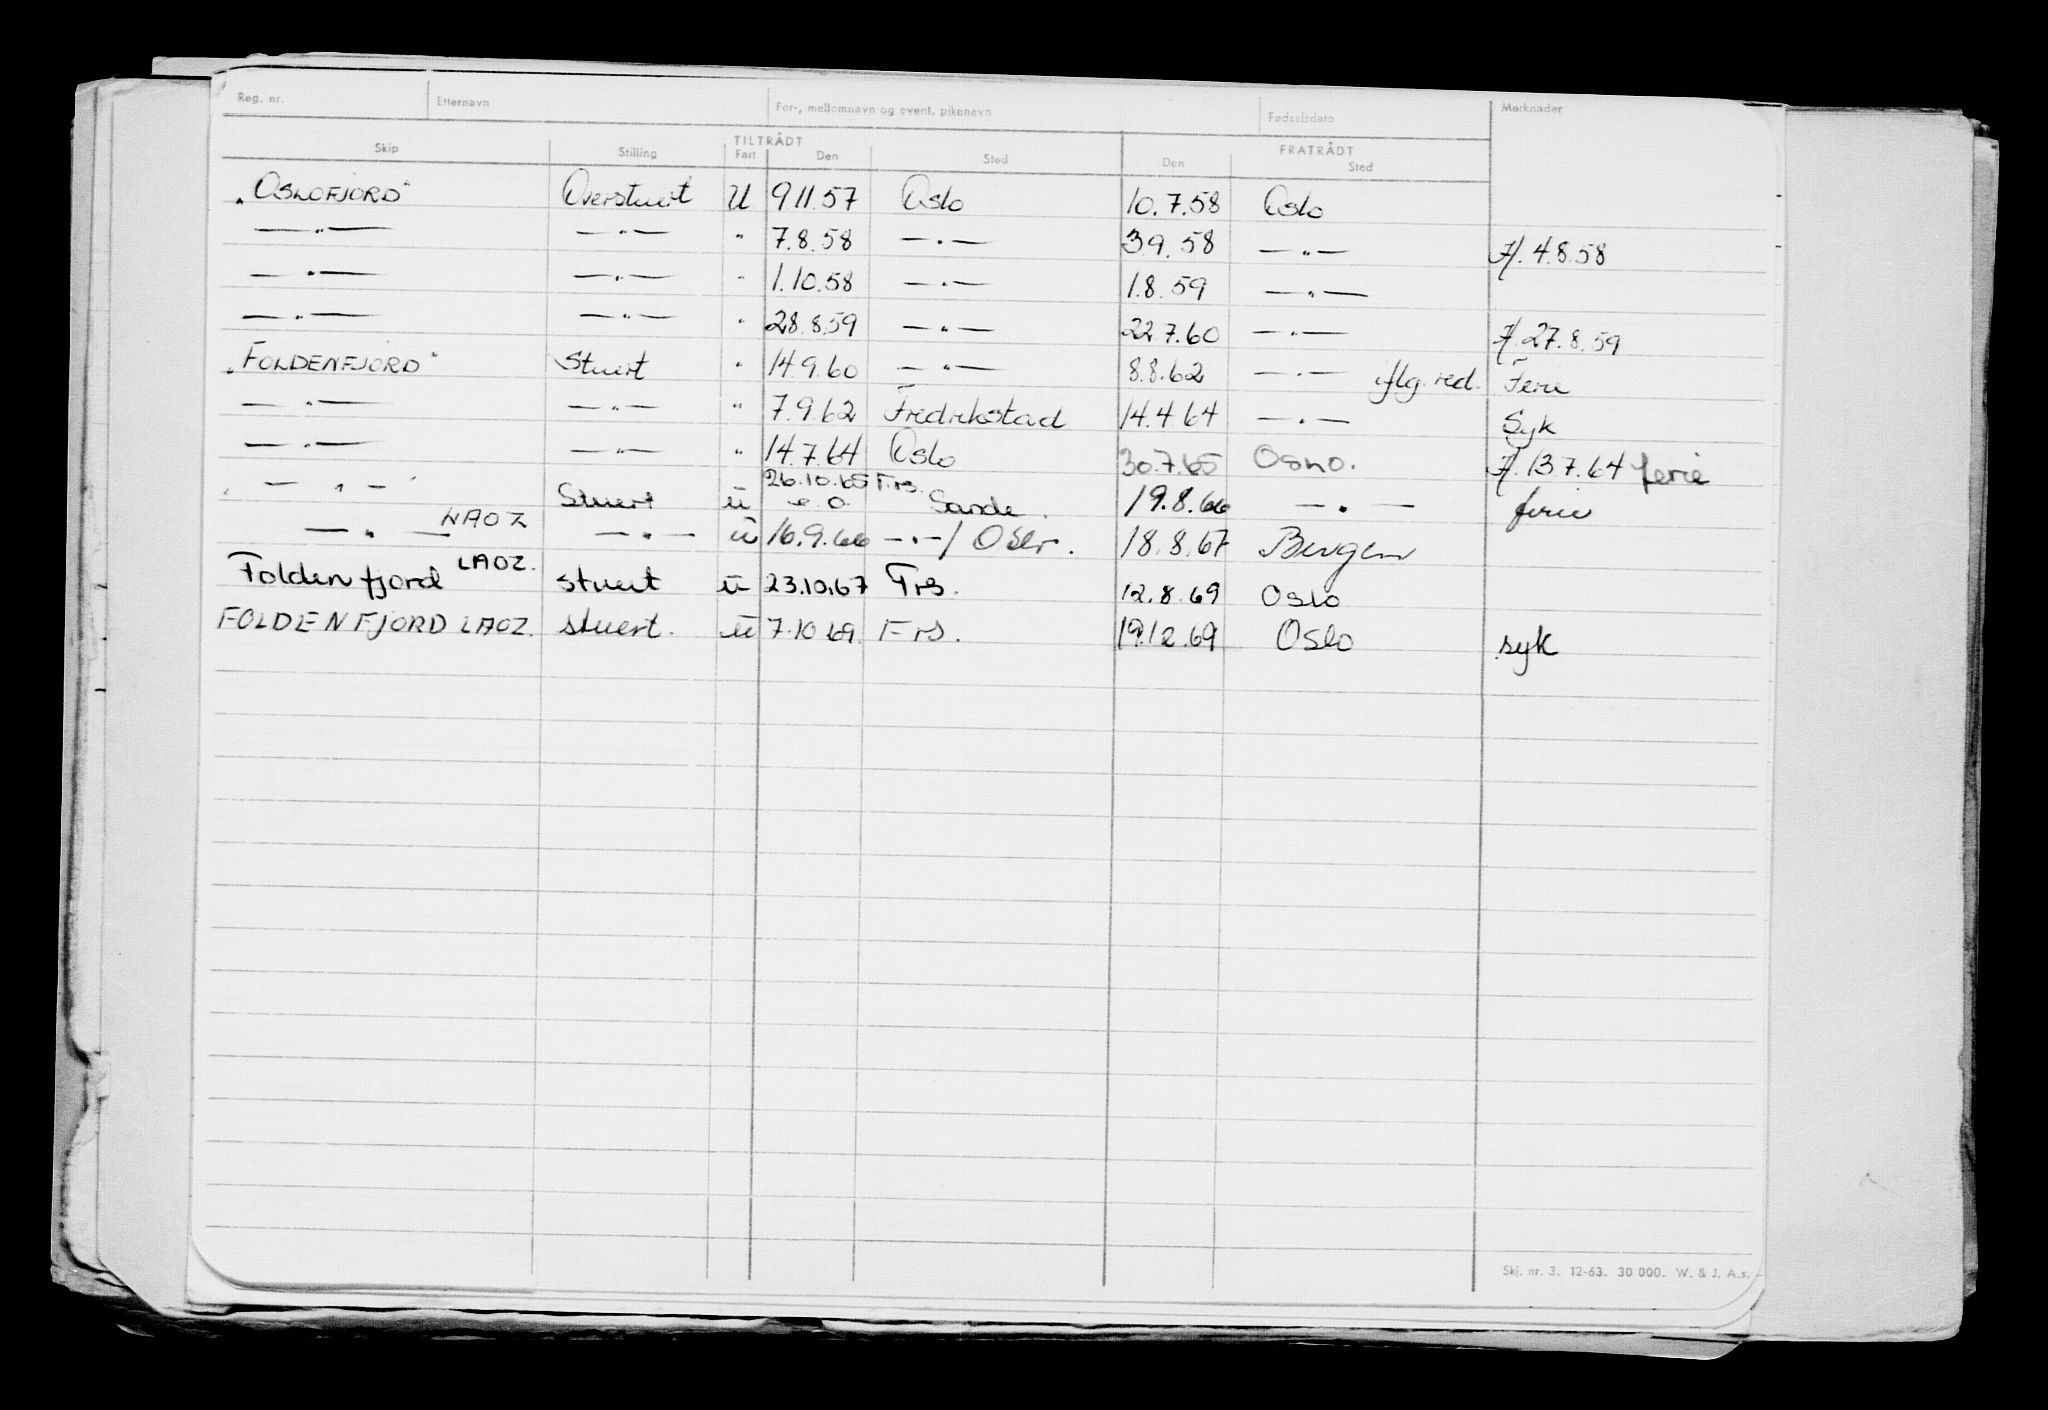 Reg. nr. Etternavn For-, mellomnavn og event. pikenavn Fødselsdato Merknader
TILTRÅDT FRATRÅDT
Skip Stilling Fart Den Sted Den Sted
"OSLOFJORD" Overstuert U 9.11.57 Oslo 10.7.58 Oslo
—"— —"— " 7.8.58 —"— 3.9.58 —"— 4.8.58
—"— —"— " 1.10.58 —"— 1.8.59 —"—
—"— —"— " 28.8.59 —"— 22.7.60 —"— 27.8.59
"FOLDENFJORD" Stuert " 14.9.60 —"— 8.8.62 —"— iflg. red. Ferie
—"— —"— " 7.9.62 Fredrikstad 14.4.64 —"— Syk
—"— —"— " 14.7.64 Oslo 30.7.65 OSLO. 13.7.64 ferie
—"— Stuert u 26.10.65 Frs. e.o. Sande. 19.8.66 —"— ferie
—"— LAOZ —"— u 16.9.66 —"—/Oslo. 18.8.67 Bergen
Foldenfjord LAOZ. stuert u 23.10.67 Frs. 12.8.69 Oslo
FOLDENFJORD LAOZ. stuert. u 7.10.69. Frs. 19.12.69 Oslo syk
Skj. nr. 3. 12-63. 30 000. W. & J. A.s.